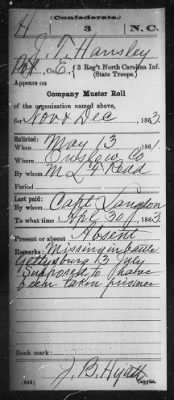 (Confederate.)
H 3 N.C.
J. T. Hansley
Pvt, Co. E, 3 Reg't North Carolina Inf.
(State Troops.)
Appears on
Company Muster Roll
of the organization named above,
for Nov & Dec, 1863.
Enlisted:
When May 13, 1861.
Where Onslow Co
By whom M L F Redd
Period
Last paid:
By whom Capt Langdon
To what time Apl 30, 1863
Present or absent Absent
Remarks: Missing in battle
Gettysburg 13 July
Supposed to have
been taken prisoner
Book mark:
(642) J. B. Hyatt
Copyist.